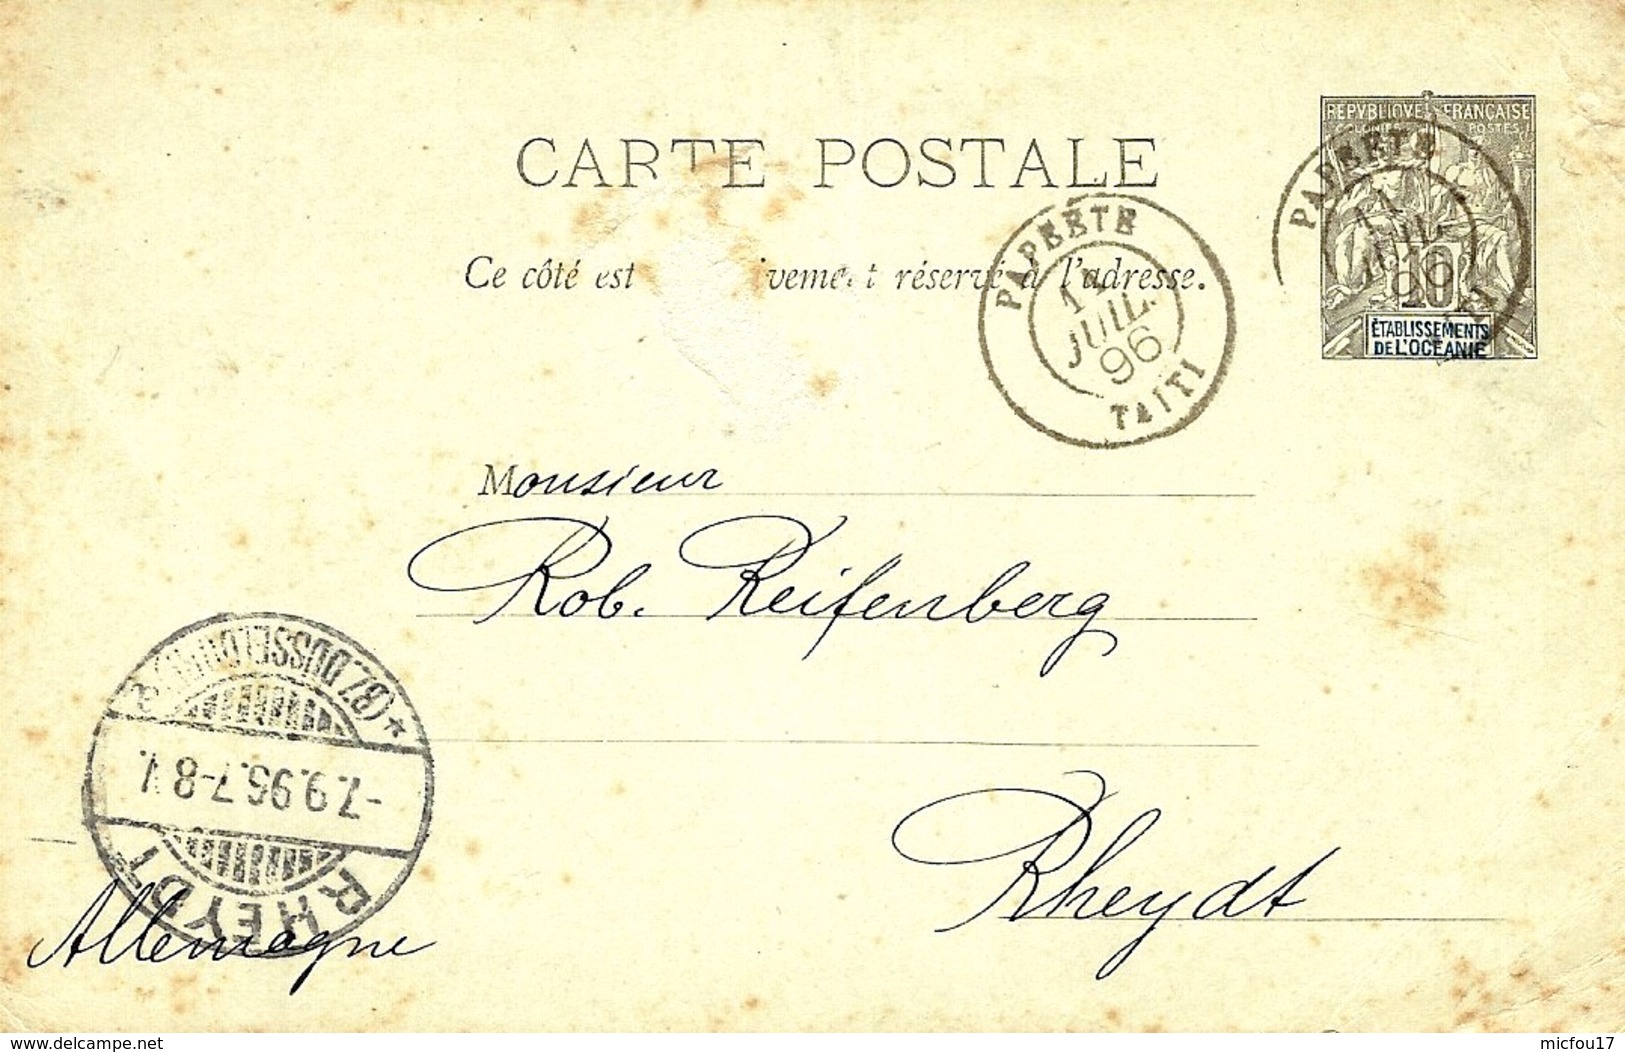 REPVBLIQVE FRANÇAISE
COLONIES POSTES
10
ÉTABLISSEMENTS
DE L'OCÉANIE
PAPEETE
JUIL.
96
TAITI
CARTE POSTALE
PAPEETE
JUIL.
96
TAITI
Ce côté est ivement réservé à l'adresse.
Monsieur
Rob. Reifenberg
Rheydt
Allemagne
RHEYDT
-7.9.96.7-8 V.
* (BZ. DÜSSELDORF) a
delcampe.net
micfou17